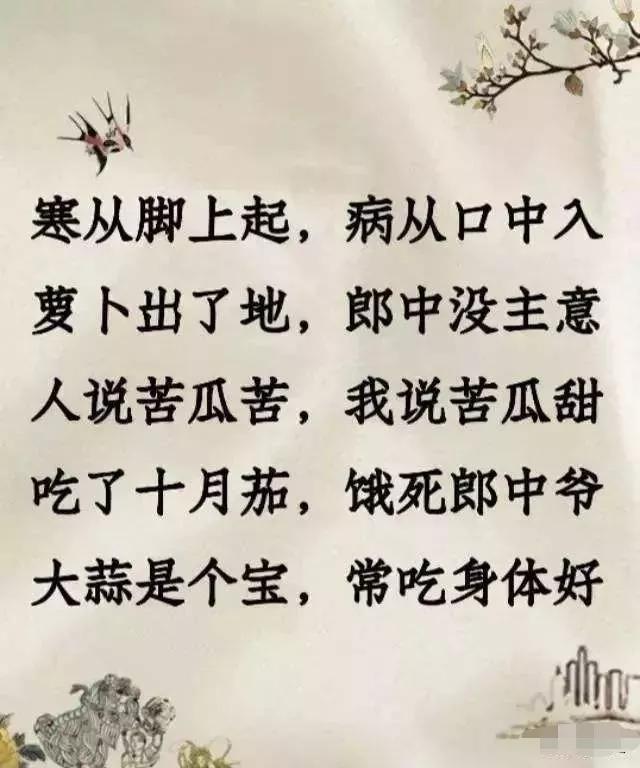 寒从脚上起，病从口中入
萝卜出了地，郎中没主意
人说苦瓜苦，我说苦瓜甜
吃了十月茄，饿死郎中爷
大蒜是个宝，常吃身体好